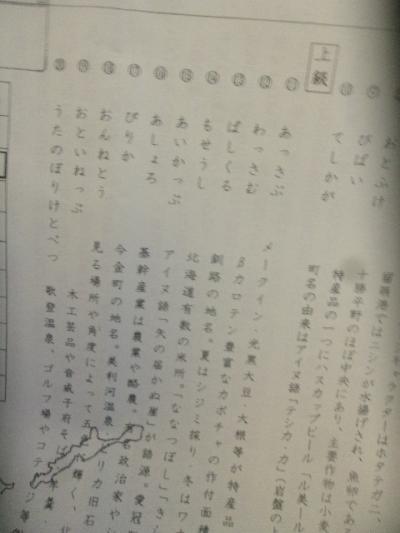 おとふけ
びばい
⑩ てしかが
上級
⑪ あっさぶ
⑫ わっさむ
⑬ ばしくる
⑭ もせうし
⑮ あいかっぷ
⑯ あしょろ
⑰ ぴりか
⑱ おんねとう
⑲ おといねっぷ
⑳ うたのぼりけとべつ
留萌港ではニシンが水揚げされ、魚卵である
十勝平野のほぼ中央にあり、主要作物は小麦
特産品の一つにハスカップビール「ル美ール
町名の由来はアイヌ語「テシカ・カ」(岩盤の
メークイン・光黒大豆・大根等が特産品
βカロテン豊富なカボチャの作付面積
釧路の地名。夏はシジミ採り・冬はワカ
北海道有数の米所。「ななつぼし」「き
アイヌ語「矢の届かぬ崖」が語源。愛冠
基幹産業は農業や酪農。 名政治家や
今金町の地名。美利河温泉・ピリカ旧石
見る場所や角度によって五 輝く、
木工芸品や音威子府そば・羊羹・
歌登温泉、ゴルフ場やコテージ等